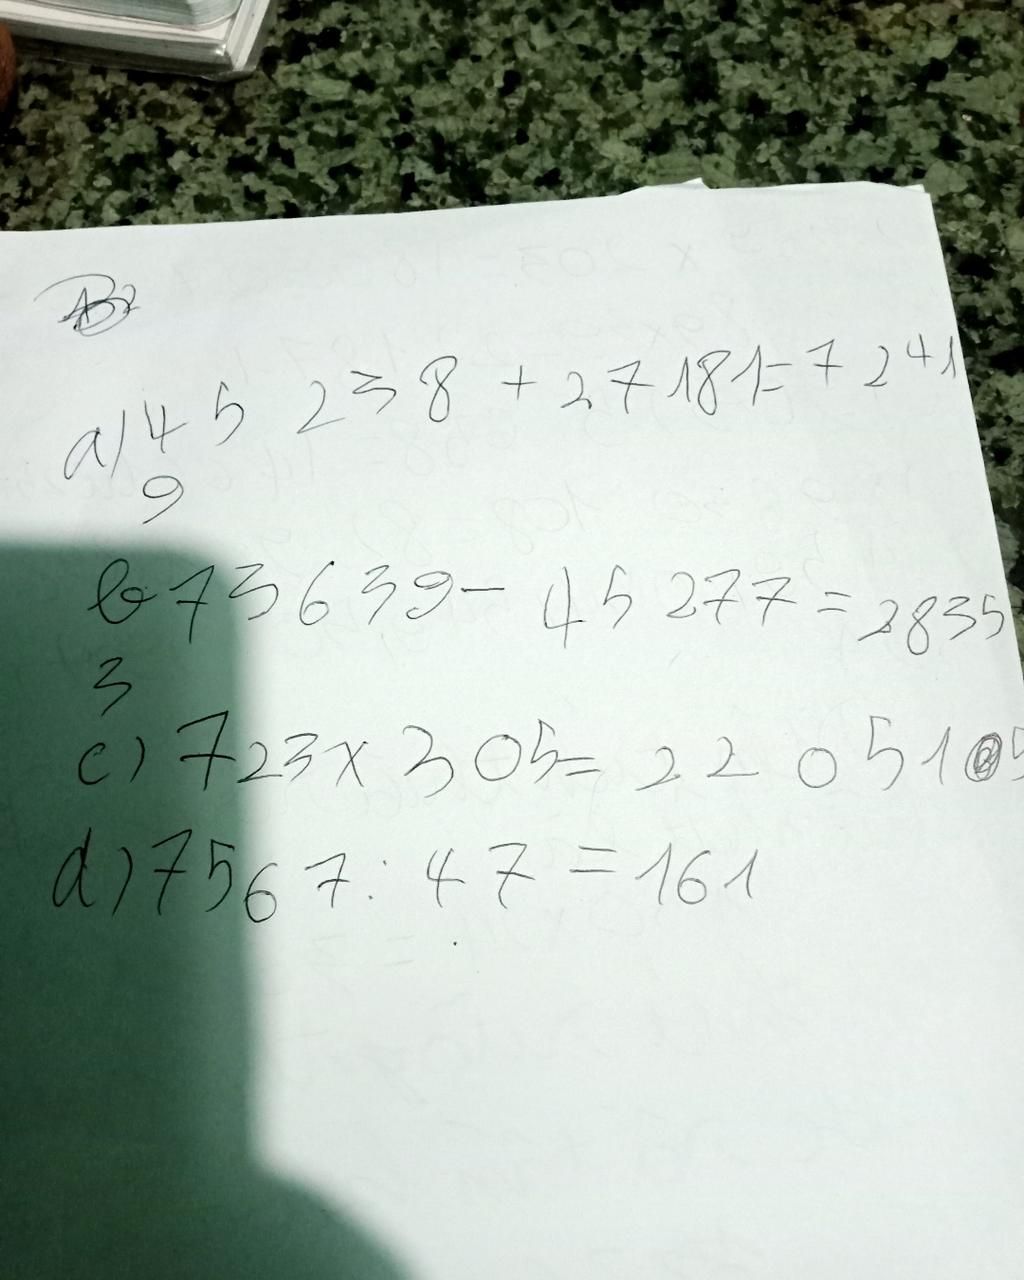 B2
a) 45 238 + 27 181 = 7 241
9
b 73639 - 45 277 = 2835
3
c) 723 x 305 = 22 05105
d) 7567 : 47 = 161